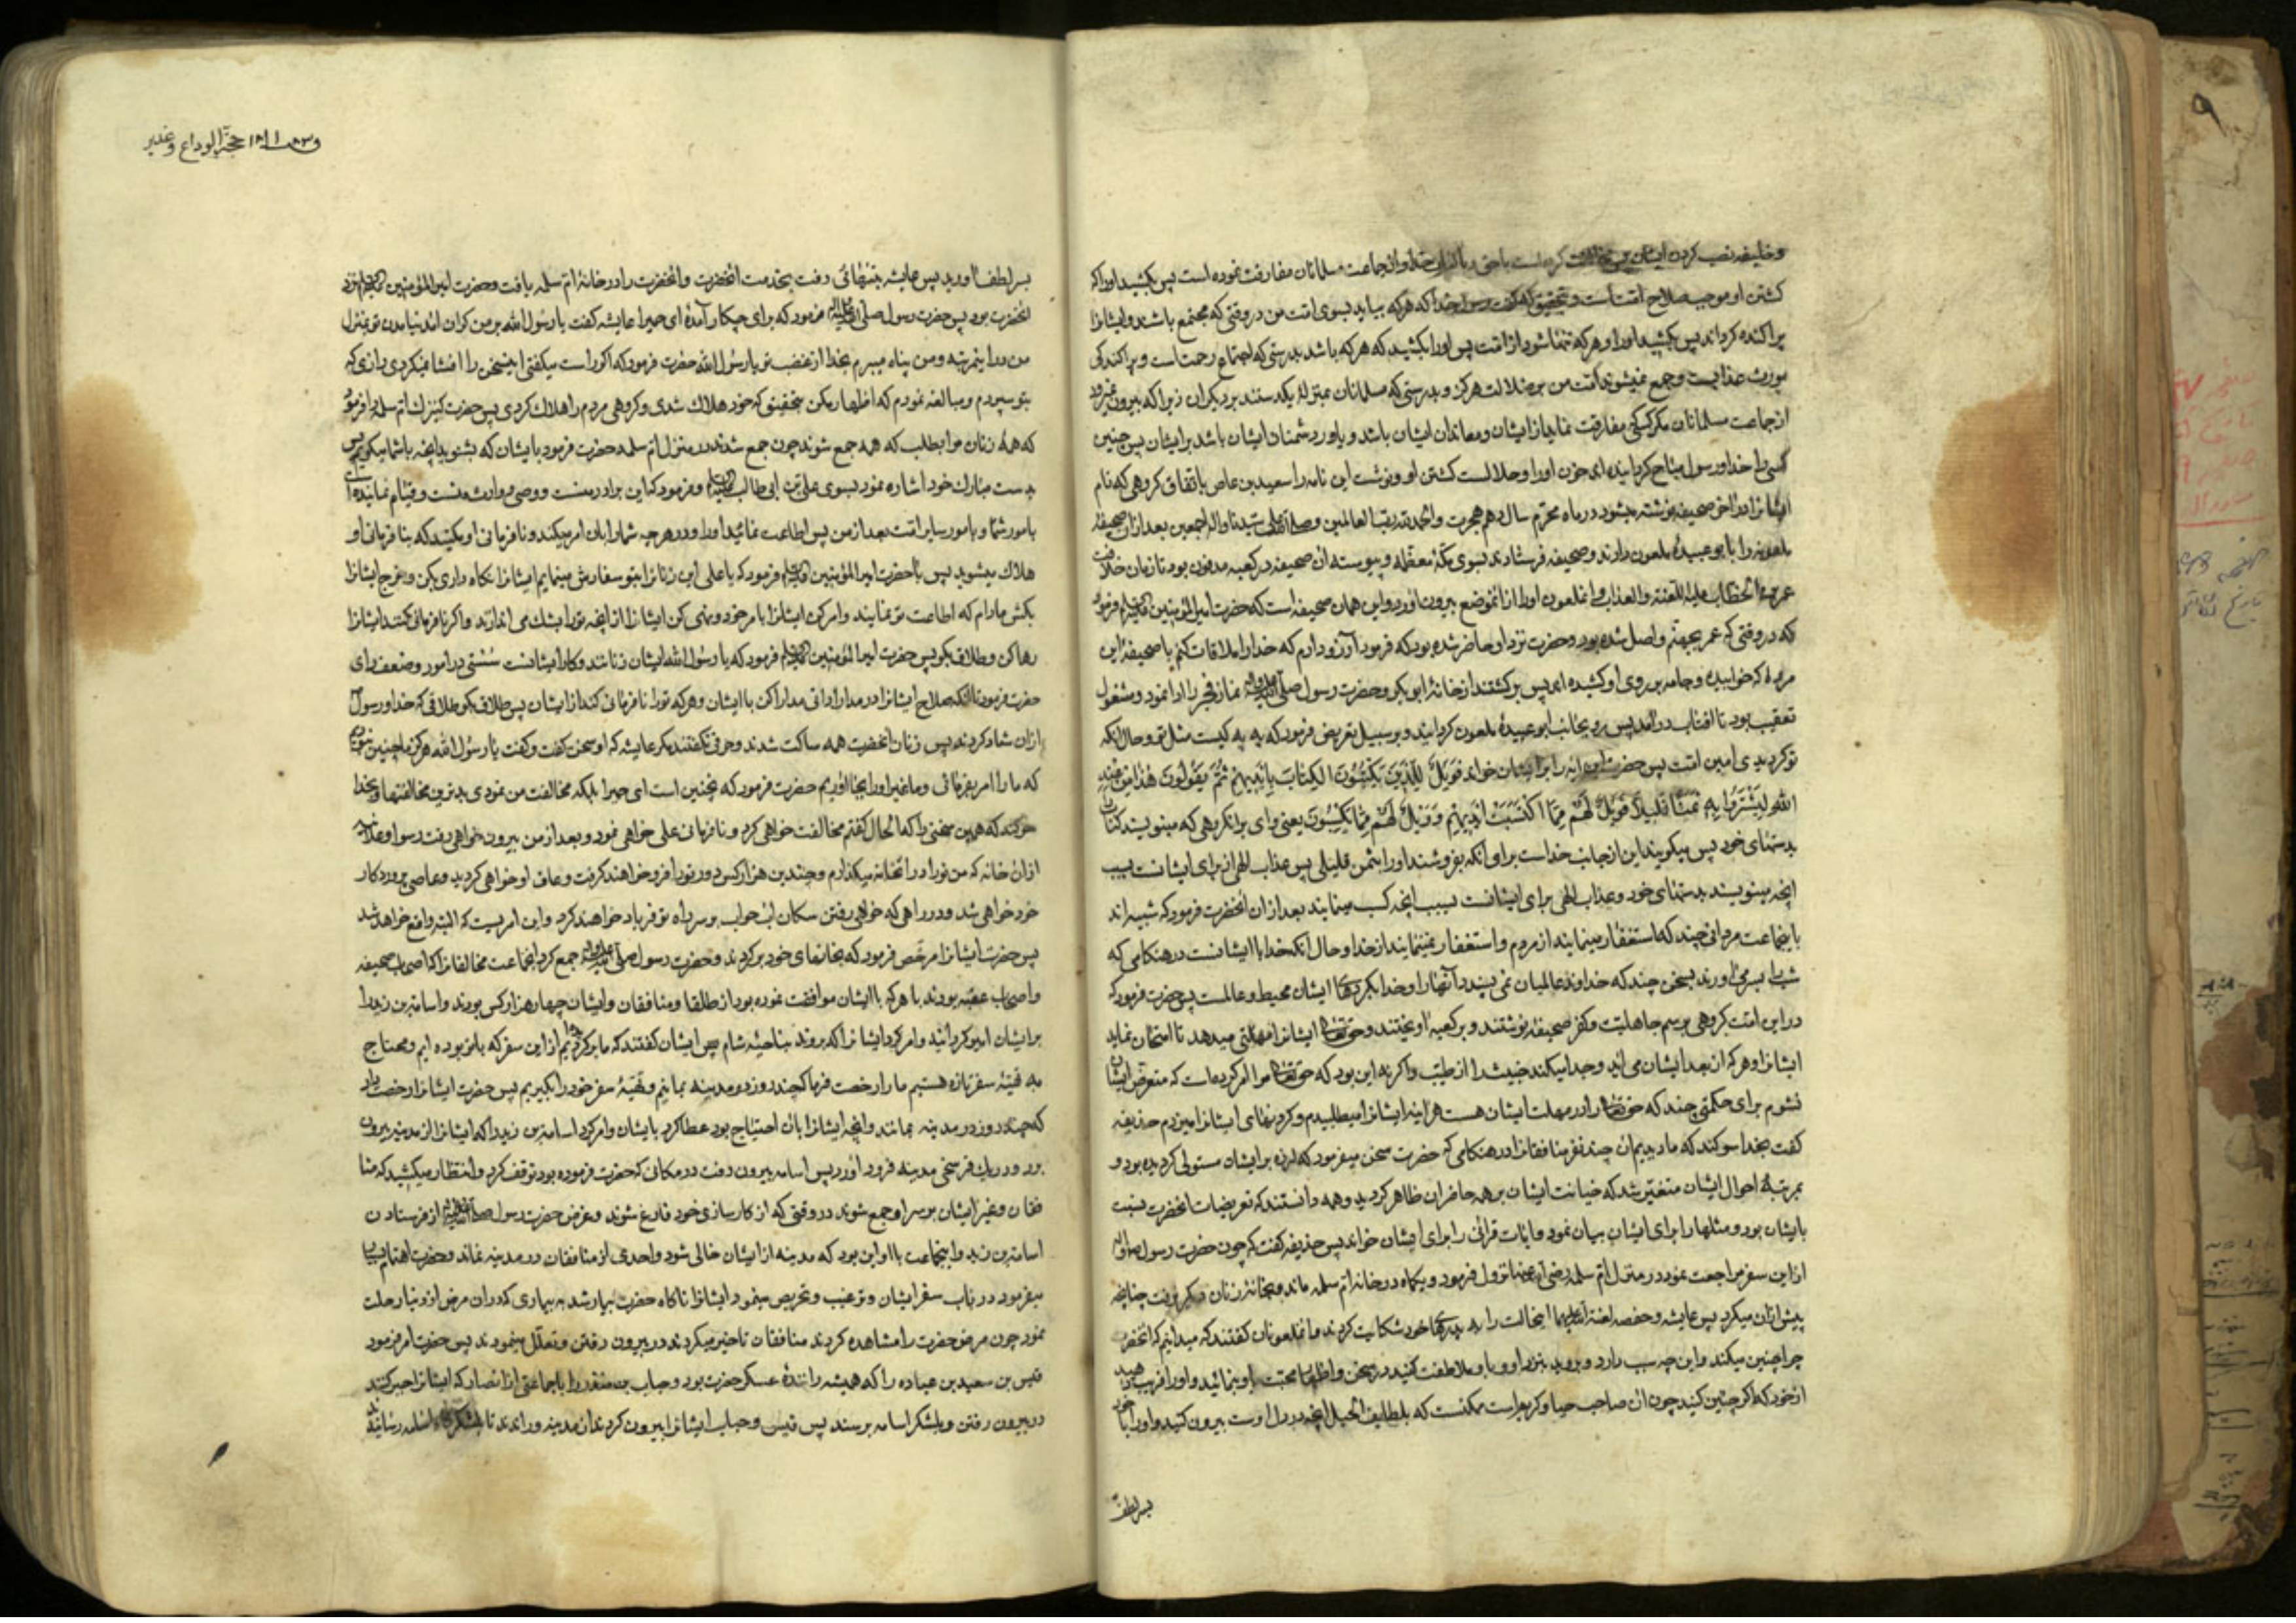 و خلیفه نصب کردن ایشان پس مخالفت کرده است با حق و با قران خدا و از جماعت مسلمانان مفارقت نموده است پس بکشید او را که
کشتن او موجب صلاح امتست و بتحقیق که گفت رسول خدا که هرکه بیاید بسوی امت من در وقتی که مجتمع باشند و ایشانرا
پراکنده گرداند پس بکشید او را و هرکه تنها شود از امت پس او را بکشید که هرکه باشد بدرستی که اجتماع رحمتست و پراکندگی
مورث عذابست و جمع نمیشوند امت من بر ضلالت هرگز و بدرستی که مسلمانان بمنزلهٔ یکدستند بر دیگران زیرا که بیرون نمیرود
از جماعت مسلمانان مگر کسی که مفارقت نماید از ایشان و معاندان ایشان باشد و یاور دشمنان ایشان باشد بر ایشان پس چنین
کسی را خدا و رسول مباح گردانیده اند خون او را و حلالست کشتن او و نوشت این نامه را سعید بن عاص باتفاق گروهی که نام
ایشانرا در آخر صحیفه نوشته میشود در ماه محرم سال دهم هجرت والحمد لله رب العالمین و صلی الله علی سیدنا و آله اجمعین بعد از ان صحیفه
ملعونه را بابو عبیدهٔ ملعون دادند و صحیفه فرستادند بسوی مکه معظمه و پیوسته ان صحیفه در کعبه مدفون بود تا زمان خلافت
عمر بن الخطاب علیه اللعنة و العذاب و انملعون او را از انموضع بیرون اورد و این همان صحیفه است که حضرت امیر المؤمنین فرمود
که در وقتی که عمر بجهنم واصل شده بود و حضرت نزد او حاضر شده بود که فرمود آرزو دارم که خدا را ملاقات کنم با صحیفه این
مرد که خوابیده و جامه بر روی او کشیده اند پس برگشتند از خانهٔ ابو بکر و حضرت رسول صلی الله علیه و آله نماز فجر را ادا نمود و مشغول
تعقیب بود تا افتاب در آمد پس رو بجانب ابو عبیدهٔ ملعون گردانید و بر سبیل تعریض فرمود که به به کیست مثل تو و حال انکه
تو گردیدی امین امت پس حضرت این ایه را بر ایشان خواند فَوَیْلٌ لِلَّذِینَ یَکْتُبُونَ الکِتابَ بِاَیْدِیهِمْ ثُمَّ یَقُولُونَ هٰذا مِنْ عِنْدِ
اللهِ لِیَشْتَرُوا بِهِ ثَمَنًا قَلِیلًا فَوَیْلٌ لَهُمْ مِمّا کَتَبَتْ اَیْدِیهِمْ وَ وَیْلٌ لَهُمْ مِمّا یَکْسِبُونَ یعنی وای بر انگروهی که مینویسند کتاب
بدستهای خود پس میگویند این از جانب خداست برای انکه بفروشند او را بثمن قلیلی پس عذاب الهی از برای ایشانست بسبب
انچه مینویسند بدستهای خود و عذاب الهی برای ایشانست بسبب انچه کسب مینمایند بعد از ان انحضرت فرمود که شبیه اند
با ینجماعت مردانی چند که استغفار مینمایند از مردم و استغفار نمینمایند از خدا و حال آنکه خدا با ایشانست در هنگامی که
شب بسر می اورند بسخن چند که خداوند عالمیان نمی پسندد آنها را و خدا بکردهای ایشان محیط و عالمست پس حضرت فرمود که
در این امت گروهی برسم جاهلیت و کفر صحیفه نوشتند و بر کعبه اویختند و حقتعالی ایشانرا مهلتی میدهد تا امتحان نماید
ایشانرا و هرکه از بعد ایشان می اید و جدا میکند خبیث را از طیب و اگر نه این بود که حقتعالی مرا امر کرده است که متعرض ایشان
نشوم برای حکمتی چند که حقتعالی را در مهلت ایشان هست هراینه ایشانرا میطلبیدم و گردنهای ایشانرا میزدم حذیفه
گفت بخدا سوگند که ما دیدیم ان چند نفر منافقانرا در هنگامی که حضرت سخن میفرمود که لرزه بر ایشان مستولی گردیده بود و
بمرتبهٔ احوال ایشان متغیر شد که خیانت ایشان بر همه حاضران ظاهر گردید و همه دانستند که تعریضات انحضرت نسبت
بایشان بود و مثلها را برای ایشان بیان نمود و ایات قرانی را برای ایشان خواند پس حذیفه گفت که چون حضرت رسول
از این سفر مراجعت نمود در منزل ام سلمه رضی الله عنها نزول فرمود و یکماه در خانه ام سلمه ماند و بخانهٔ زنان دیگر نرفت چنانچه
پیش از ان میکرد پس عایشه و حفصه لعنة الله علیهما اینحالت را به پدرهای خود شکایت کردند و انملعونان گفتند که میدانیم که انحضرت
چرا چنین میکند و این چه سبب دارد و بروید بنزد او و با او ملاطفت کنید در سخن و اظهار محبت باو بنمائید و او را فریب دهید
از خود که اگر چنین کنید چون ان صاحب حیا و کریم است ممکنست که بلطایف الحیل انچه در دل اوست بیرون کنید و او را با خود
بسر لطف
بسر لطف اورید پس عایشه بتنهائی رفت بخدمت انحضرت و انحضرت را در خانهٔ ام سلمه یافت و حضرت امیر المؤمنین نزد
انحضرت بود پس حضرت رسول صلی الله علیه و آله فرمود که برای چکار آمدهٔ ای حمیرا عایشه گفت یا رسول الله بر من گران آمد نیامدن تو بمنزل
من در اینمرتبه و من پناه میبرم بخدا از غضب تو یا رسول الله حضرت فرمود که اگر راست میگفتی اینسخن را افشا نمیکردی رازی که
بتو سپردم و مبالغه نمودم که اظهار مکن بتحقیق که خود هلاک شدی و گروهی مردم را هلاک کردی پس حضرت کنیزک ام سلمه را فرمود
که همهٔ زنان مرا بطلب که همه جمع شوند چون جمع شدند در منزل ام سلمه حضرت فرمود بایشان که بشنوید انچه با شما میگویم پس
بدست مبارک خود اشاره نمود بسوی علی بن ابی طالب و فرمود که این برادر منست و وصی و وارث منست و قیام نماینده است
بامور شما و بامور سایر امت بعد از من پس اطاعت نمائید او را در هرچه شما را بان امر میکند و نافرمانی او مکنید که بنافرمانی او
هلاک میشوید پس با حضرت امیر المؤمنین فرمود که یا علی این زنانرا بتو سفارش مینمایم ایشانرا نگاه داری بکن و خرج ایشانرا
بکش مادام که اطاعت تو نمایند و امر کن ایشانرا بامر خود و نهی کن ایشانرا از انچه تو را بشک می اندازند و اگر نافرمانی کنند ایشانرا
رها کن و طلاق بگو پس حضرت امیر المؤمنین فرمود که یا رسول الله ایشان زنانند و کار ایشانست سستی در امور و ضعف رای
حضرت فرمود تا انکه صلاح ایشانرا در مدارا دانی مدارا کن با ایشان و هرکه تو را نافرمانی کند از ایشان پس طلاق بگو طلاقی که خدا و رسول
ازان شاد گردند پس زنان انحضرت همه ساکت شدند و حرفی نگفتند مگر عایشه که او سخن گفت و گفت یا رسول الله هرگز ما چنین نبودیم
که ما را امر بفرمائی و ما غیر او را بجا اوریم حضرت فرمود که نچنین است ای حمیرا بلکه مخالفت من نمودی بدترین مخالفتها و بخدا
سوگند که همین سخنی را که الحال گفتم مخالفت خواهی کرد و نافرمانی علی خواهی نمود و بعد از من بیرون خواهی رفت رسوا و علانیه
ازان خانه که من تو را در انخانه میگذارم و چندین هزار کس دور تو را فرو خواهند گرفت و عاق او خواهی گردید و عاصی پروردگار
خود خواهی شد و در راهی که خواهی رفتن سگان اب حواب بر سر راه تو فریاد خواهند کرد و این امریست که البته واقع خواهد شد
پس حضرت ایشانرا مرخص فرمود که بخانهای خود برگردند و حضرت رسول صلی الله علیه و آله جمع کرد انجماعت مخالفانرا که اصحاب صحیفه
و اصحاب عقبه بودند با هرکه با ایشان موافقت نموده بود از طلقا و منافقان و ایشان چهار هزار کس بودند و اسامة بن زید را
بر ایشان امیر گردانید و امر کرد ایشانرا که بروند بناحیهٔ شام پس ایشان گفتند که ما برگردیدیم از این سفر که با تو بوده ایم و محتاج
به تهیهٔ سفر تازه هستیم ما را رخصت فرما که چند روز در مدینه بمانیم و تهیهٔ سفر خود را بگیریم پس حضرت ایشانرا رخصت داد
که چند روز در مدینه بمانند و انچه ایشانرا بان احتیاج بود عطا کرد بایشان و امر کرد اسامة بن زید را که ایشانرا از مدینه بیرون
برد و در یک فرسخی مدینه فرود اورد پس اسامه بیرون رفت در مکانی که حضرت فرموده بود توقف کرد و انتظار میکشید که منا
فقان و غیر ایشان بر سر او جمع شوند در وقتی که از کارسازی خود فارغ شوند و غرض حضرت رسول صلی الله علیه و آله از فرستادن
اسامة بن زید و اینجماعت با او این بود که مدینه از ایشان خالی شود و احدی از منافقان در مدینه نماند و حضرت اهتمام بسیار
میفرمود در باب سفر ایشان و ترغیب و تحریص مینمود ایشانرا ناگاه حضرت بیمار شد به بیماری که در ان مرض از دنیا رحلت
نمود چون مرض حضرت را مشاهده کردند منافقان تاخیر میکردند در بیرون رفتن و تعلل مینمودند پس حضرت امر فرمود
قیس بن سعید بن عباده را که همیشه رانندهٔ عسکر حضرت بود و حباب بن منذر را با جماعتی از انصار که ایشانرا جبر کنند
در بیرون رفتن و بلشکر اسامه برسند پس قیس و حباب ایشانرا بیرون کردند از مدینه و راندند تا بلشکرگاه اسامه رسانیدند
حجة الوداع و غدیر
۹